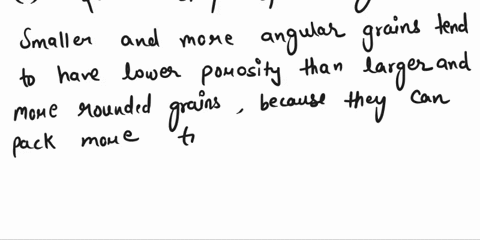 Smaller and more angular grains tend
to have lower porosity than larger and
more rounded grains, because they can
pack more t